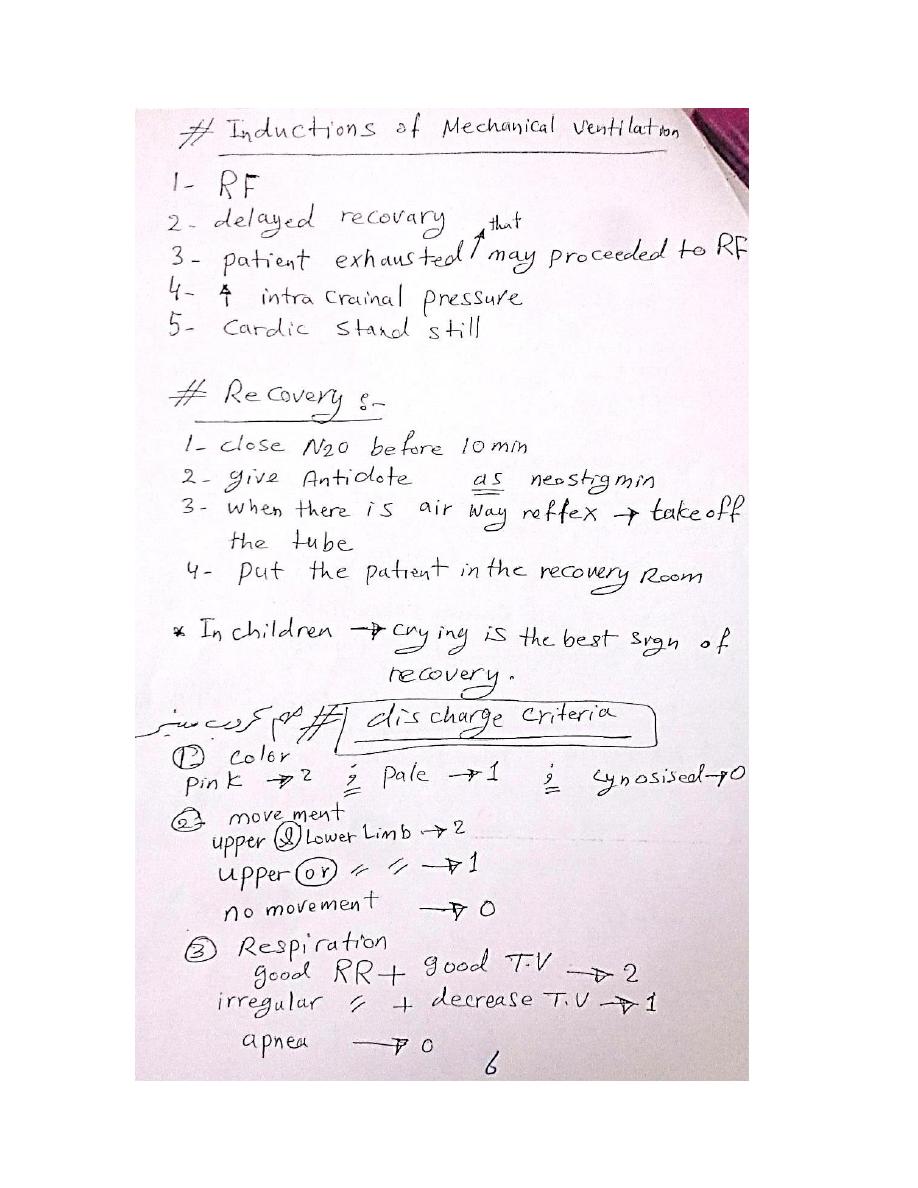 # Inductions of Mechanical Ventilation
1- RF
2- delayed recovary
3- patient exhausted that may proceeded to RF
4- ↑ intra crainal pressure
5- Cardic stand still
# Recovery :-
1- close N2O before 10 min
2- give Antidote as neostigmin
3- when there is air way reffex → take off
the tube
4- put the patient in the recovery Room
* In children → crying is the best sign of
recovery.
# discharge criteria مهم
① color
pink → 2 ; pale → 1 ; cynosised → 0
② movement
upper & Lower Limb → 2
upper or 〃 〃 → 1
no movement → 0
③ Respiration
good RR + good T.V → 2
irregular 〃 + decrease T.V → 1
apnea → 0
6